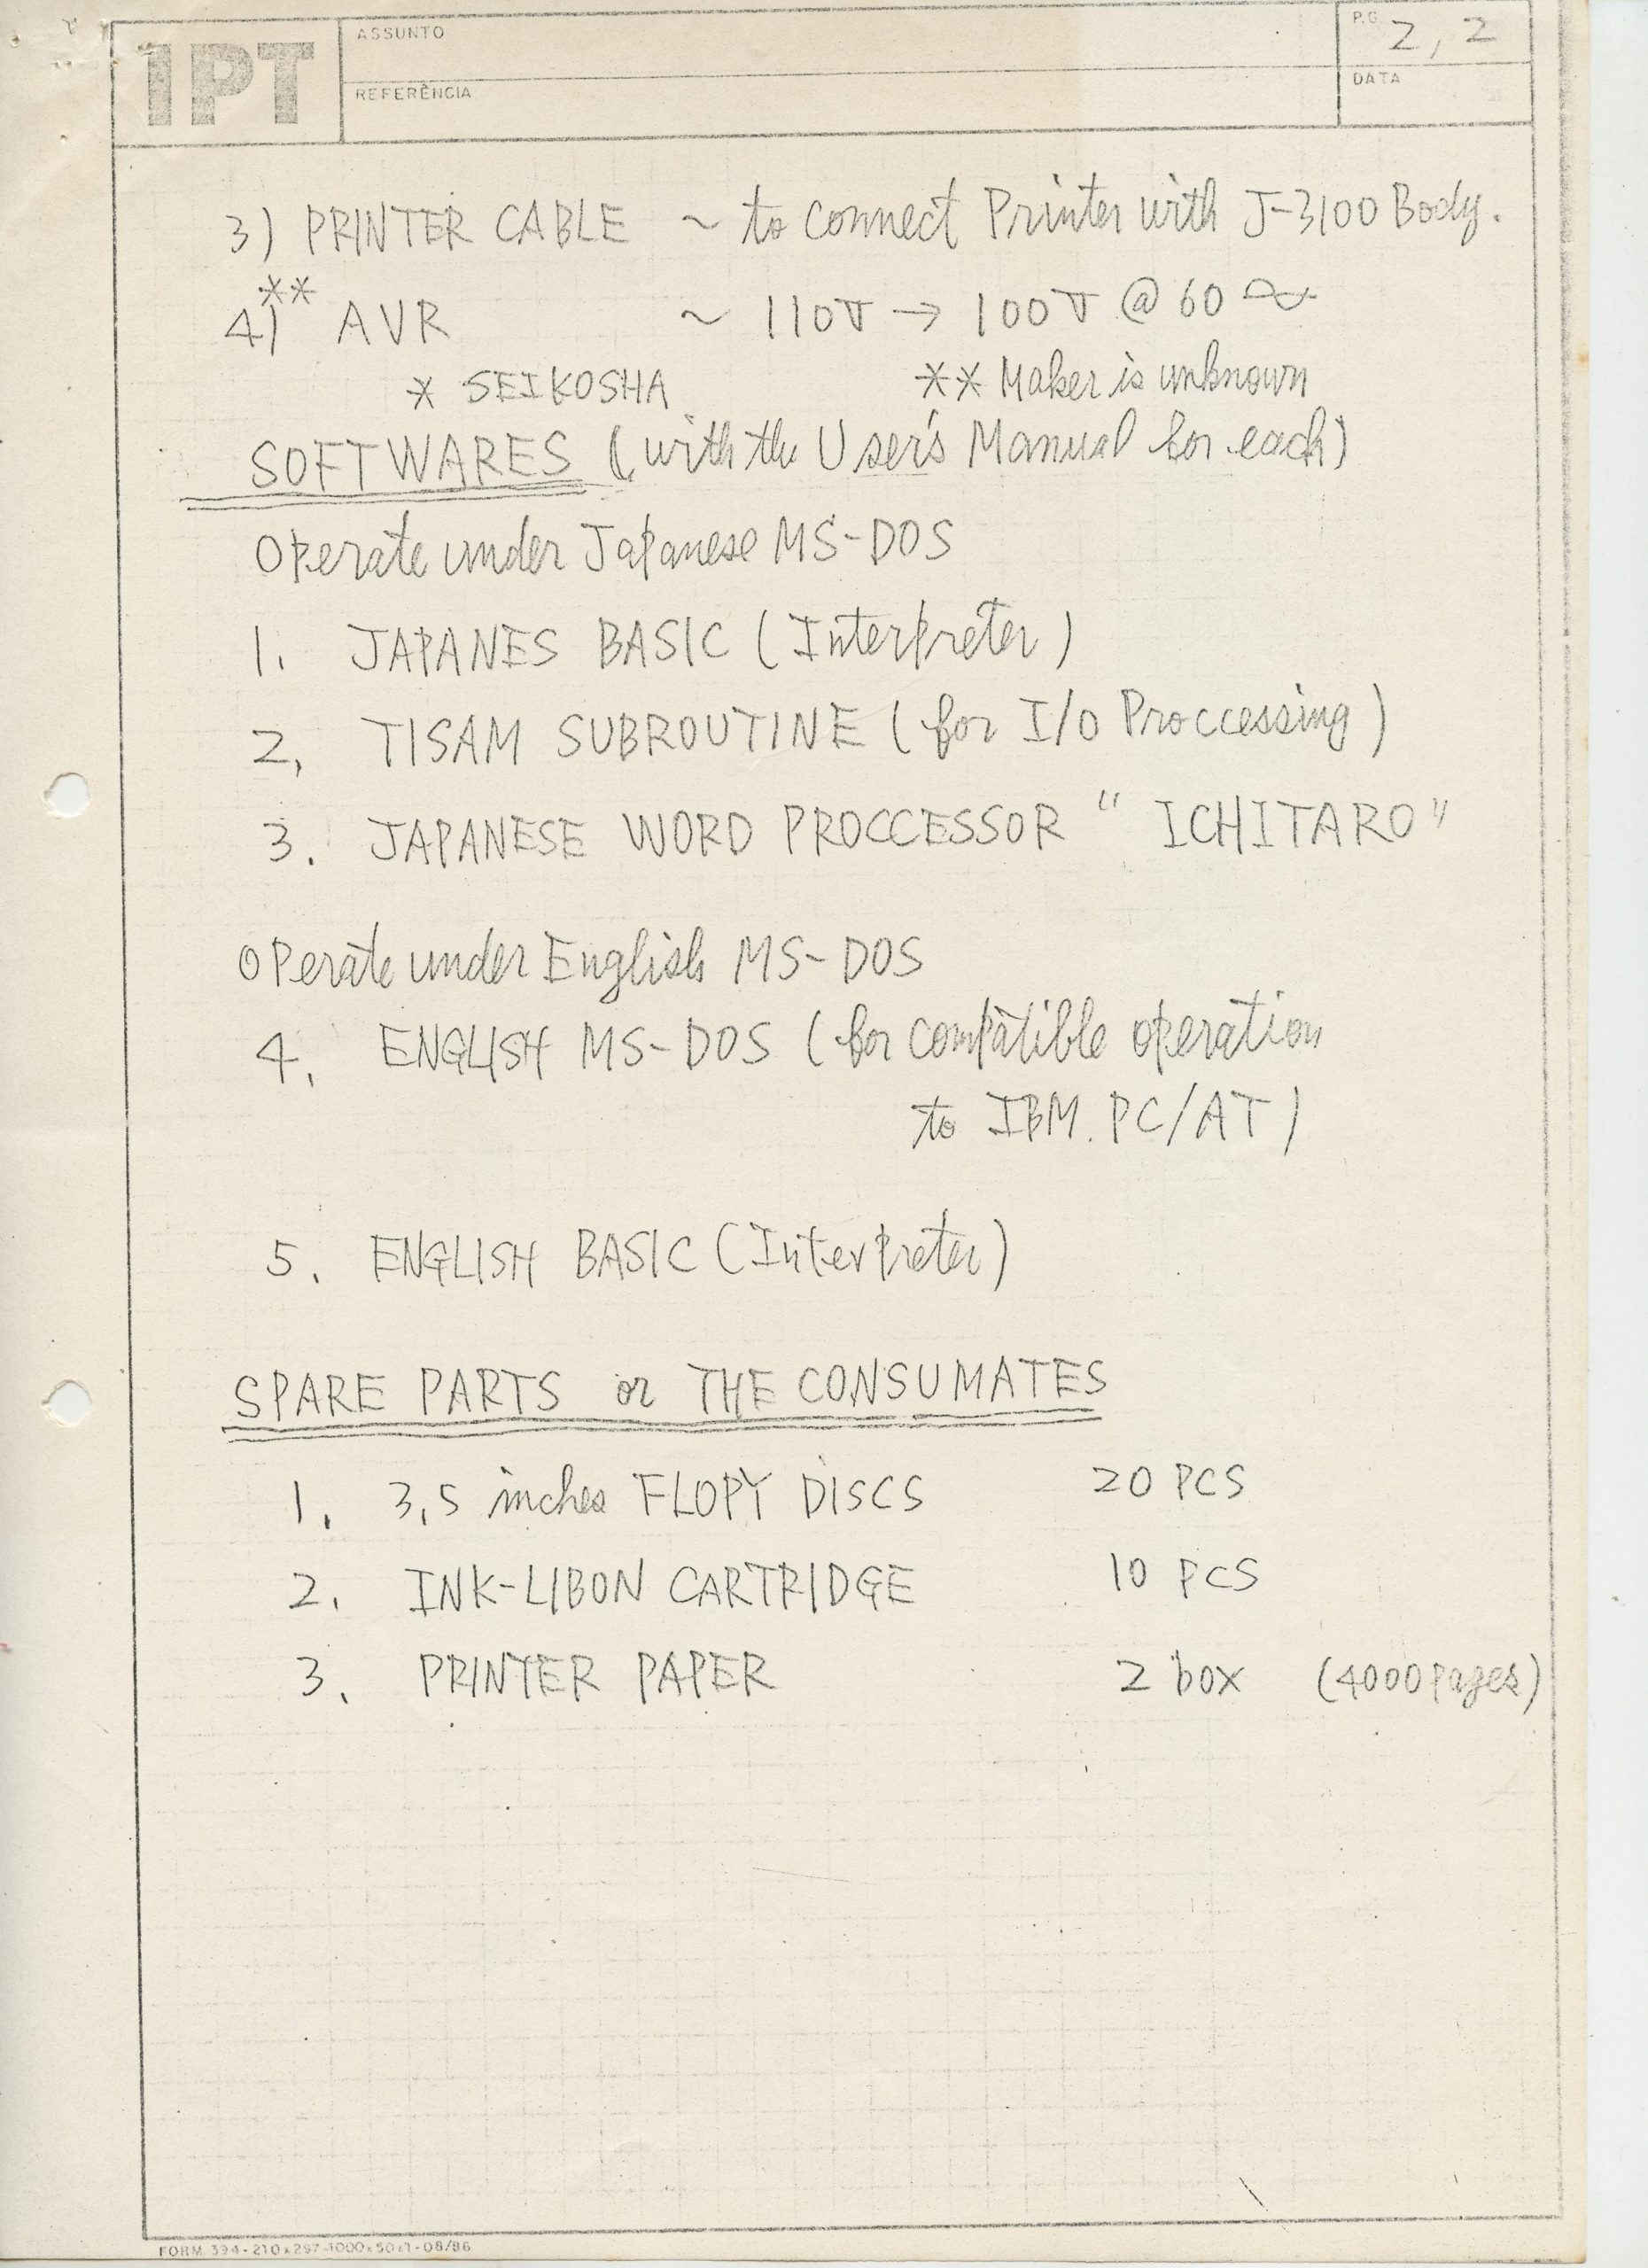 IPT
ASSUNTO
REFERÊNCIA
P.G. 2, 2
DATA
3) PRINTER CABLE ~ to connect Printer with J-3100 Body.
4)** AVR ~ 110V → 100V @ 60 ~
* SEIKOSHA ** Maker is unknown
SOFTWARES (with the User's Manual for each)
Operate under Japanese MS-DOS
1. JAPANES BASIC (Interpreter)
2, TISAM SUBROUTINE (for I/O Proccessing)
3. JAPANESE WORD PROCCESSOR "ICHITARO"
Operate under English MS-DOS
4. ENGLISH MS-DOS (for compatible operation
to IBM. PC/AT)
5. ENGLISH BASIC (Interpreter)
SPARE PARTS or THE CONSUMATES
1. 3,5 inches FLOPY DISCS 20 PCS
2. INK-LIBON CARTRIDGE 10 PCS
3. PRINTER PAPER 2 box (4000 pages)
FORM. 394-210x297-1000x50x1-08/86